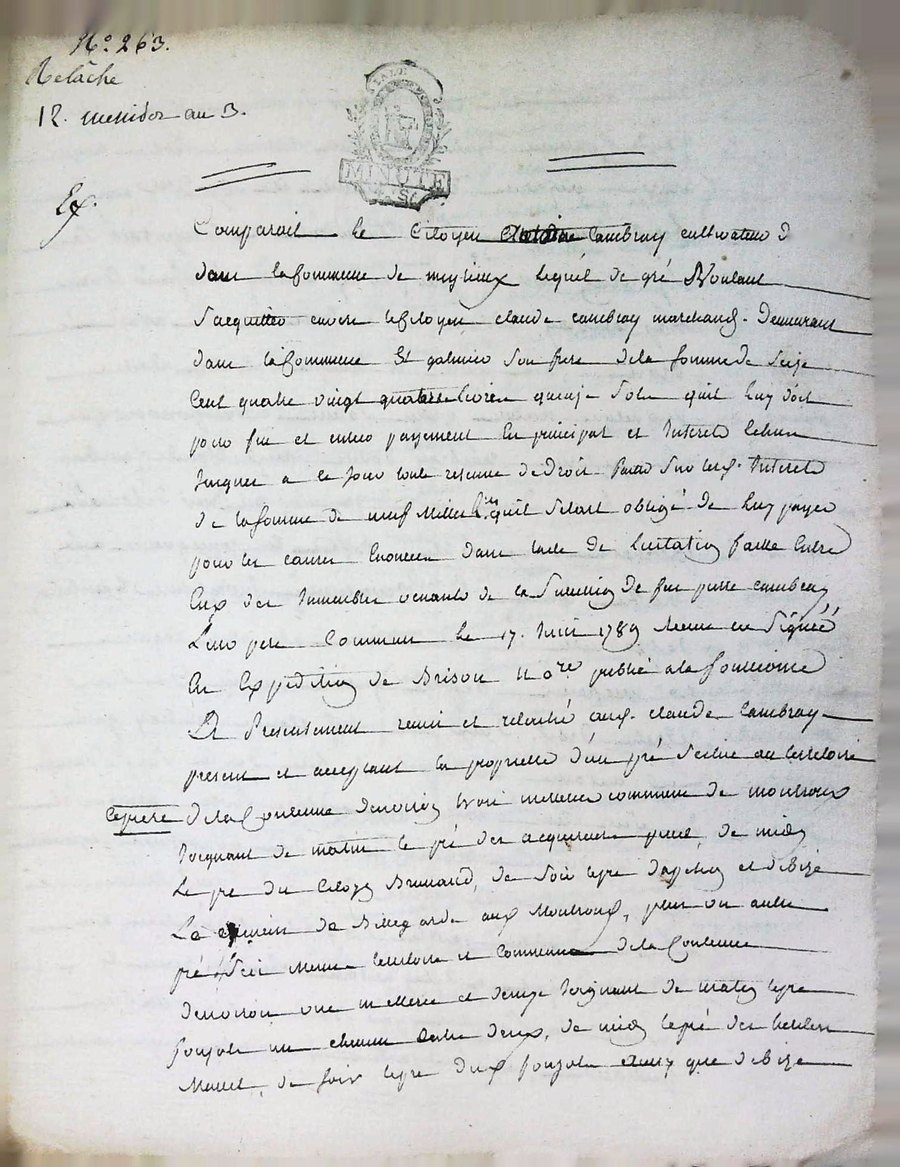 N.o 263.
Relâche
12. messidor an 3.
MINUTE
Ex.
Comparoit le Citoyen Cambray cultivateur d
dans la Commune de meylieux lequel de gré Voulant
Sacquitter envers le Citoyen claude cambray marchand. Demeurant
dans la Commune St galmier Son frere de la Somme de Seize
Cent quatre vingt quatre livres quinze Sols quil luy doit
pour fin et entier payement En principal et Interets Echus
Jusques a ce Jour toute reserve de droit Interets
de la Somme de neuf Mille livres quil Setait obligé de luy payer
pour les causes Enoncées dans lacte de licitation passé Entre
Eux des Immeubles venants de la Succession de feu pierre cambray
Leur pere Commun le 17. 1789 en
En Expedition de Brison N.ore publié a la
Et Presentement remis et relaché aud. claude Cambray
present et acceptant la proprieté d'un pré Scitué au territoire
le pre de la Contenue denviron trois commune de montroux
Joignant de matin le pré des acquereurs de midy
Le pre du Citoyen Brunand, de Soir le pre et debize
Le chemin de Bellegarde aux Montroux, plus un autre
pré Scis Meme territoire et Commune de la Contenue
denviron une et demye Joignant de matin le pre
un chemin Entre deux, de midy le pré des heritiers
de Soir le pre que debize